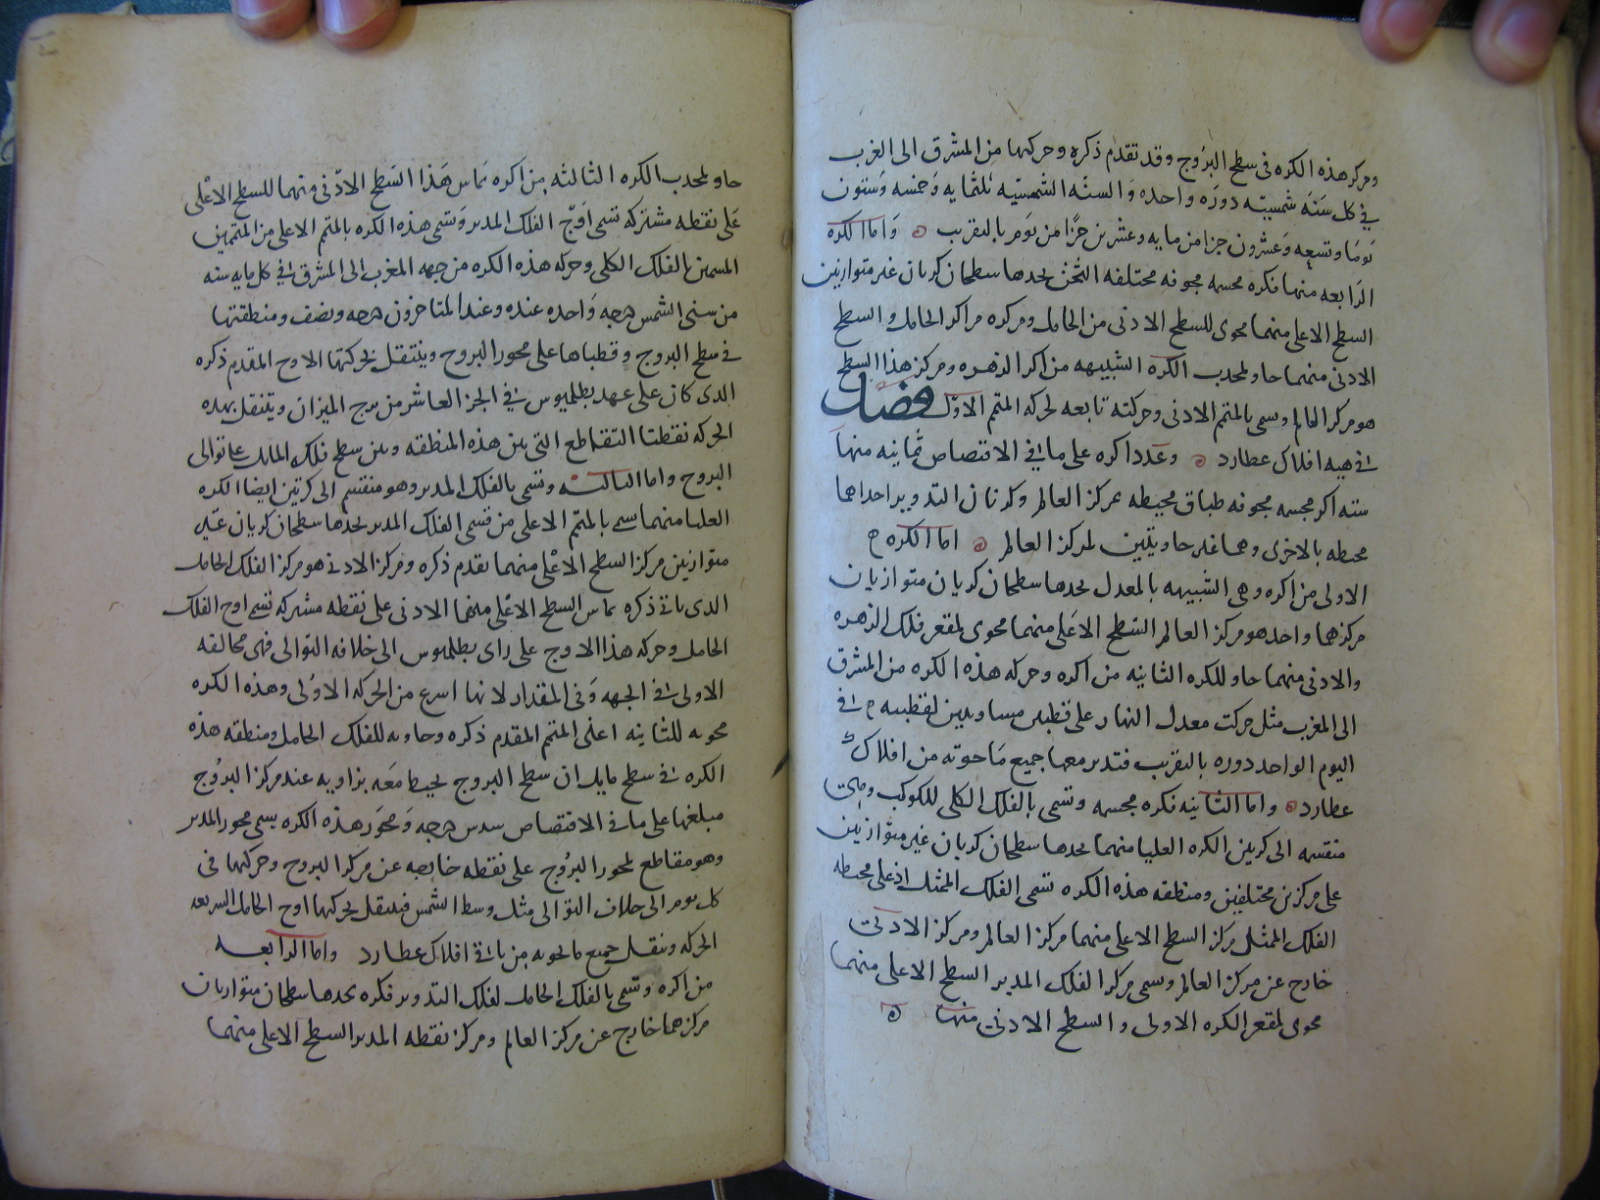 ومركز هذه الكره فى سطح البروج وقد تقدم ذكره وحركتها من المشرق الى الغرب
فى كل سنه شمسيه دوره واحده والسنه الشمسيه ثلثمايه وخمسه وستون
يوما وتسعه وعشرون جزا من مايه وعشرين جزا من يوم بالتقريب واما الكره
الرابعه منها فكره مجسمه مجوفه مختلفه الثخن يحدها سطحان كريان غير متوازيين
السطح الاعلى منهما محوى للسطح الادنى من الحامل ومركزه مركز الحامل والسطح
الادنى منهما حاو لمحدب الكره الشبيهه من اكر الزهره ومركز هذا السطح
هو مركز العالم وسمى بالمتمم الادنى وحركته تابعه لحركه المتمم الاول فصل
فى هيه افلاك عطارد وعدد اكره على ما فى الاقتصاص ثمانيه منها
سته اكر مجسمه مجوفه طباق محيطه بمركز العالم وكرتان التدوير احداهما
محيطه بالاخرى وهما غير حاويتين لمركز العالم اما الكره
الاولى من اكره وهى الشبيهه بالمعدل يحدها سطحان كريان متوازيان
مركزهما واحد هو مركز العالم السطح الاعلى منهما محوى لمقعر فلك الزهره
والادنى منهما حاو للكره الثانيه من اكره وحركه هذه الكره من المشرق
الى المغرب مثل حركت معدل النهار على قطبين مساويين لقطبيه فى
اليوم الواحد دوره بالتقريب فتدير معها جميع ما حوته من افلاك
عطارد واما الثانيه فكره مجسمه وتسمى بالفلك الكلى للكوكب وهى
منقسمه الى كرتين الكره العليا منهما يحدها سطحان كريان غير متوازيين
على مركزين مختلفين ومنطقه هذه الكره تسمى الفلك الممثل اذ على محيطه
الفلك الممثل مركز السطح الاعلى منهما مركز العالم ومركز الادنى
خارج عن مركز العالم ويسمى مركز الفلك المدير السطح الاعلى منهما
محوى لمقعر الكره الاولى والسطح الادنى منها
حاو لمحدب الكره الثالثه من اكره يماس هذا السطح الادنى منهما للسطح الاعلى
على نقطه مشتركه تسمى اوج الفلك المدير وتسمى هذه الكره بالمتمم الاعلى من المتممين
المسمين بالفلك الكلى وحركه هذه الكره من جهه المغرب الى المشرق فى كل مايه سنه
من سنى الشمس درجه واحده عنده وعند المتاخرون درجه ونصف ومنطقتها
فى سطح البروج وقطباها على محور البروج وينتقل بحركتها الاوج المقدم ذكره
الدى كان على عهد بطلميوس فى الجز العاشر من برج الميزان وينتقل بهذه
الحركه نقطتا التقاطع التى بين هذه المنطقه وبين سطح فلك المايل على توالى
البروج واما الثالثه وتسمى بالفلك المدير وهو منقسم الى كرتين ايضا الكره
العليا منهما تسمى بالمتمم الاعلى من قسمى الفلك المدير يحدها سطحان كريان غير
متوازيين مركز السطح الاعلى منهما تقدم ذكره ومركز الادنى هو مركز الفلك الحامل
الدى ياتى ذكره يماس السطح الاعلى منهما الادنى على نقطه مشتركه تسمى اوج الفلك
الحامل وحركه هذا الاوج على راى بطلميوس الى خلافه التوالى فهى مخالفه
الاولى فى الجهه وفى المقدار لانها اسرع من الحركه الاولى وهذه الكره
محويه للثانيه اعنى المتمم المقدم ذكره وحاويه للفلك الحامل ومنطقه هذه
الكره فى سطح مايل ان سطح البروج يحيط معه بزاويه عند مركز البروج
مبلغها على ما فى الاقتصاص سدس درجه ومحور هذه الكره يسمى محور المدير
وهو مقاطع لمحور البروج على نقطه خارجه عن مركز البروج وحركتها فى
كل يوم الى خلاف التوالى مثل وسط الشمس فينتقل بحركتها اوج الحامل السريعه
الحركه وينتقل جميع ما تحويه من باقى افلاك عطارد واما الرابعه
من اكره وتسمى بالفلك الحامل لفلك التدوير فكره يحدها سطحان متوازيان
مركزهما خارج عن مركز العالم ومركز نقطه المدير السطح الاعلى منهما